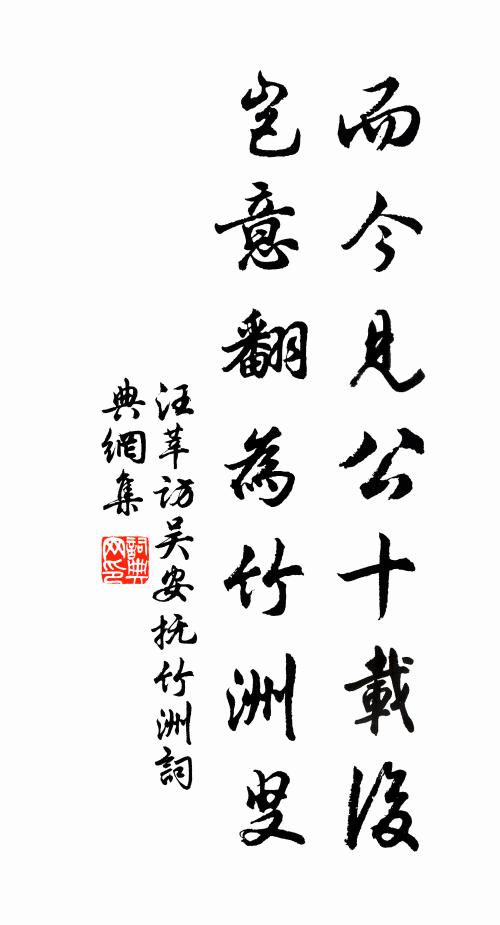 而今見公十載後
豈意翻為竹洲叟
汪莘訪吴安抚竹洲詞
典網集
詞典
网印